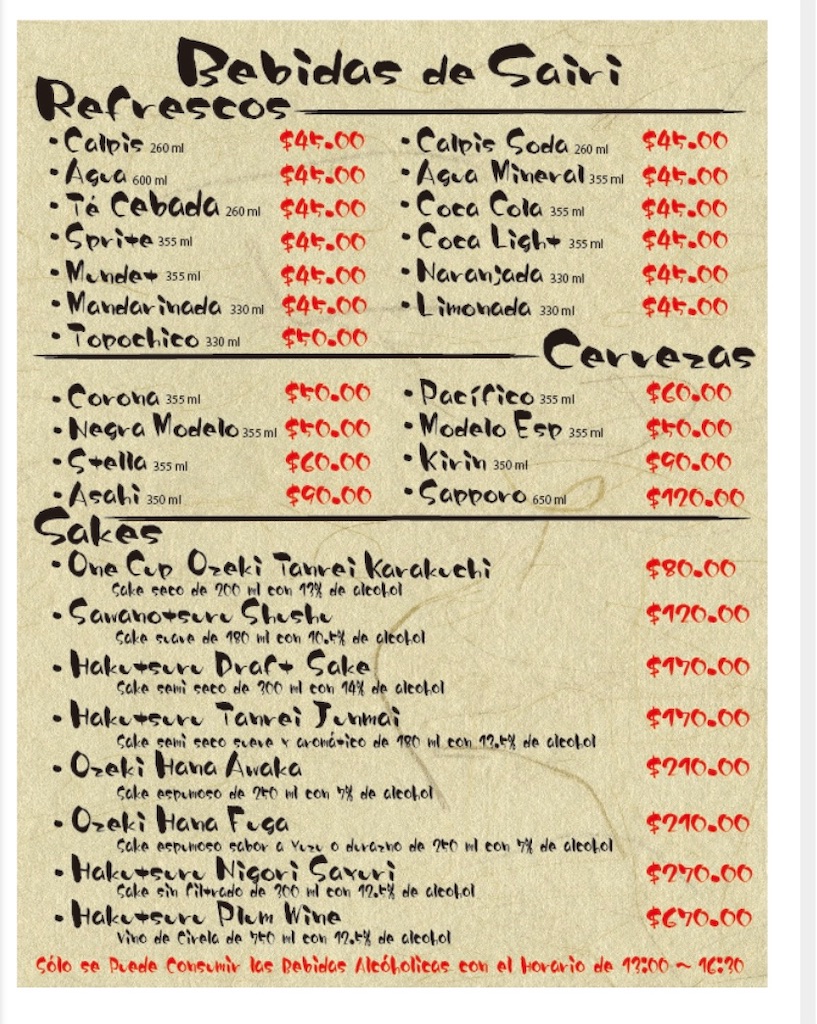 Bebidas de Sairi
Refrescos
• Calpis 260 ml $45.00 • Calpis Soda 260 ml $45.00
• Agua 600 ml $45.00 • Agua Mineral 355 ml $45.00
• Té Cebada 260 ml $45.00 • Coca Cola 355 ml $45.00
• Sprite 355 ml $45.00 • Coca Light 355 ml $45.00
• Mundet 355 ml $45.00 • Naranjada 330 ml $45.00
• Mandarinada 330 ml $45.00 • Limonada 330 ml $45.00
• Topochico 330 ml $50.00
Cervezas
• Corona 355 ml $50.00 • Pacífico 355 ml $60.00
• Negra Modelo 355 ml $50.00 • Modelo Esp 355 ml $50.00
• Stella 355 ml $60.00 • Kirin 350 ml $90.00
• Asahi 350 ml $90.00 • Sapporo 650 ml $120.00
Sakes
• One Cup Ozeki Tanrei Karakuchi $80.00
Sake seco de 200 ml con 13% de alcohol
• Sawanotsuru Shushu $120.00
Sake suave de 180 ml con 10.5% de alcohol
• Hakutsuru Draft Sake $170.00
Sake semi seco de 300 ml con 14% de alcohol
• Hakutsuru Tanrei Junmai $170.00
Sake semi seco sueve y aromático de 180 ml con 13.5% de alcohol
• Ozeki Hana Awaka $210.00
Sake espumoso de 250 ml con 7% de alcohol
• Ozeki Hana Fuga $210.00
Sake espumoso sabor a Yuzu o durazno de 250 ml con 5% de alcohol
• Hakutsuru Nigori Sayuri $270.00
Sake sin filtrado de 300 ml con 12.5% de alcohol
• Hakutsuru Plum Wine $670.00
Vino de Cirela de 750 ml con 12.5% de alcohol
Sólo se Puede Consumir las Bebidas Alcóholicas con el Horario de 13:00 ~ 16:30